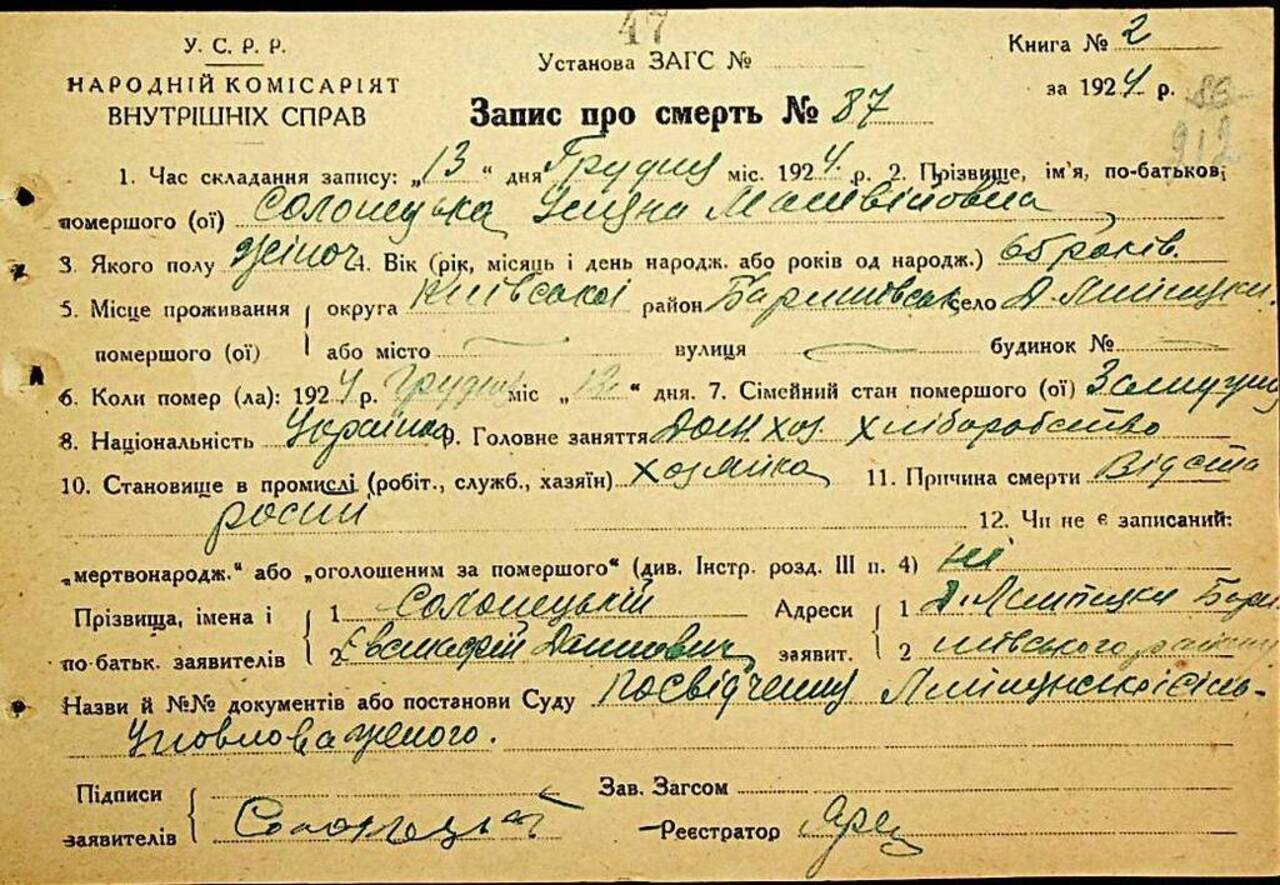 47
У. С. Р. Р.
НАРОДНІЙ КОМІСАРІЯТ
ВНУТРІШНІХ СПРАВ
Установа ЗАГС №
Книга № 2
за 1924 р.
Запис про смерть № 87
1. Час складання запису: „13“ дня Грудня міс. 1924. р. 2. Прізвище, ім'я, по-батькові
помершого (ої) Солонецька Уляна Матвійовна
3. Якого полу жіноч 4. Вік (рік, місяць і день народж. або років од народж.) 65 років.
5. Місце проживання округа Київської район Баришівськ село
помершого (ої) або місто вулиця будинок №
6. Коли помер (ла): 1924 р. Грудня міс „ “ дня. 7. Сімейний стан помершого (ої) Замужня
8. Національність Українка 9. Головне заняття Дом. хоз. хліборобство
10. Становище в промислі (робіт., служб., хазяїн) хозяйка 11. Причина смерти Від ста
росты
12. Чи не є записаний:
„мертвонародж.“ або „оголошеним за помершого“ (див. Інстр. розд. III п. 4) ні
Прізвища, імена і 1 Солонецький Адреси 1
по-батьк. заявителів 2 Данилович заявит. 2 шівського району
Назви й №№ документів або постанови Суду Посвідчення сіль-
Уповноваженого.
Підписи Зав. Загсом
заявителів Солонецький Реєстратор